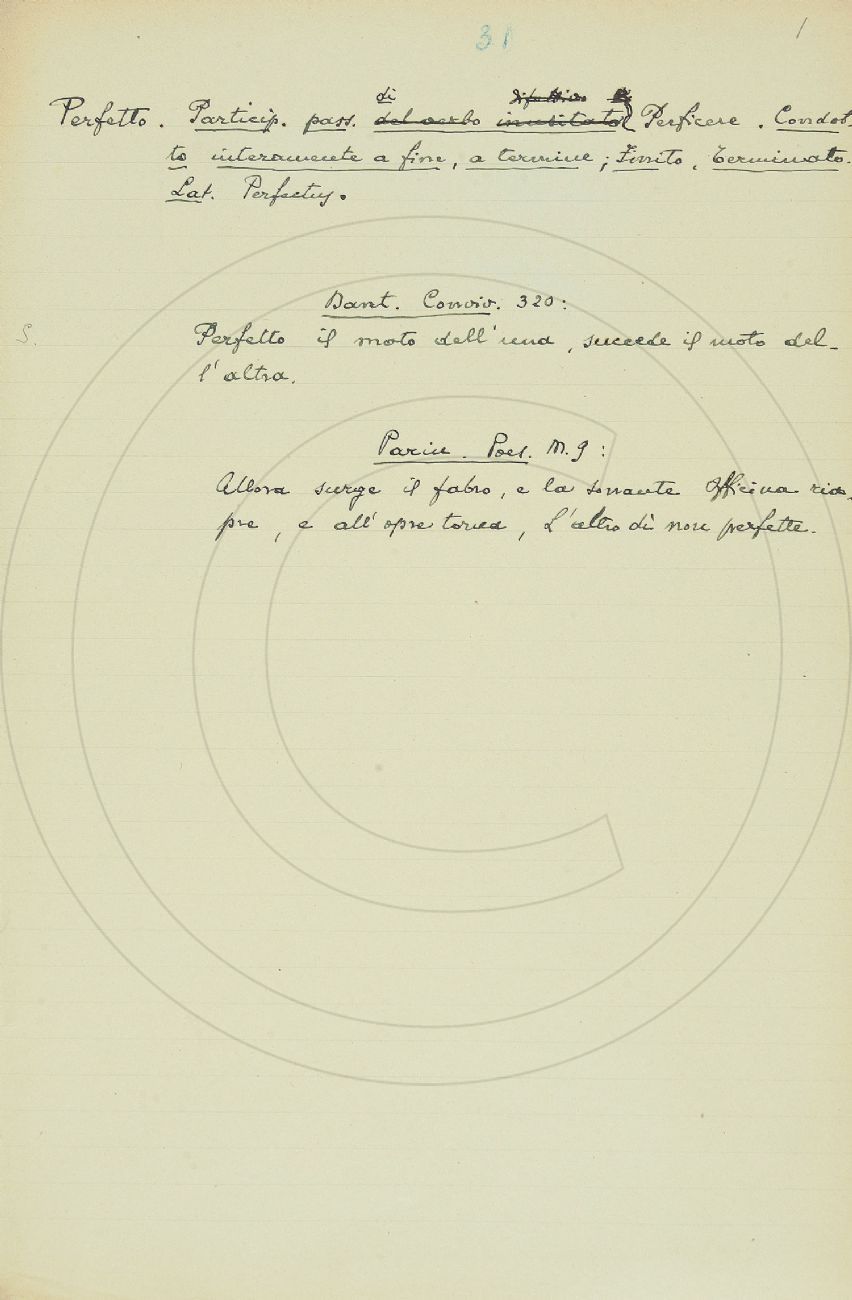 31 1
di difettivo
Perfetto. Particip. pass. del verbo inusitato Perficere. Condot-
to interamente a fine, a termine; Finito, Terminato.
Lat. Perfectus.
Dant. Conviv. 320:
S. Perfetto il moto dell'una, succede il moto del-
l'altra.
Parin. Poes. M. 9:
Allora surge il fabro, e la sonante Officina ria-
pre, e all'opre torna, L'altro dì non perfette.